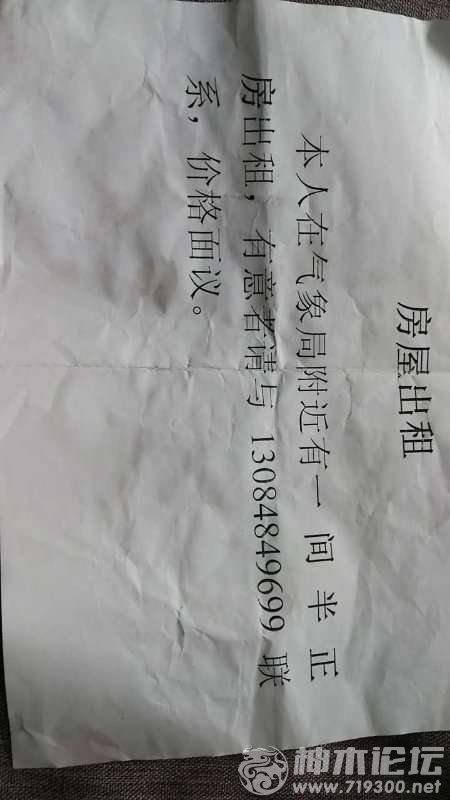 房屋出租
本人在气象局附近有一间半正
房出租，有意者请与 13084849699 联
系，价格面议。
神木论坛
www.719300.net